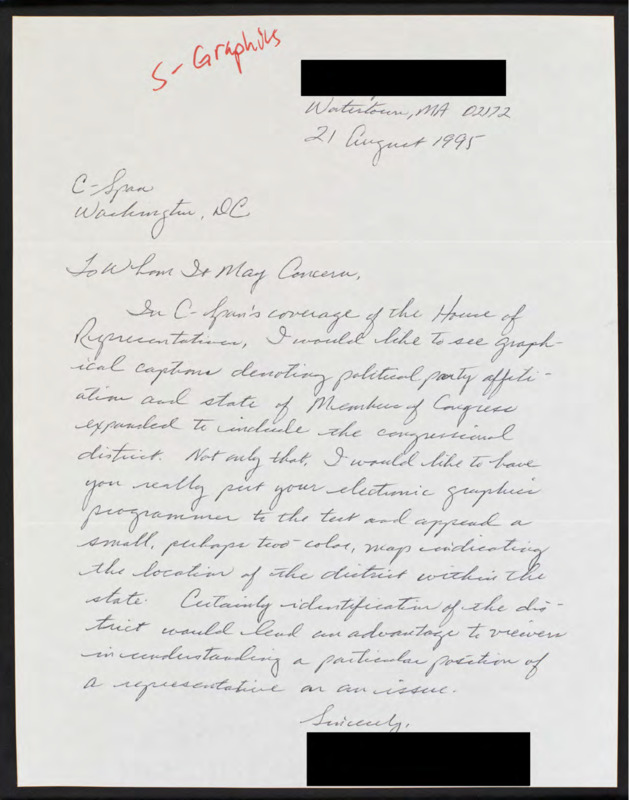 S- Graphics
Watertown, MA 02172
21 August 1995
C-Span
Washington, DC
To Whom It May Concern,
In C-Span's coverage of the House of
Representatives, I would like to see graph-
ical captions denoting political party affili-
ation and state of Members of Congress
expanded to include the congressional
district. Not only that, I would like to have
you really put your electronic graphics
programmer to the test and append a
small, perhaps two-color, map indicating
the location of the district within the
state. Certainly identification of the dis-
trict would lend an advantage to viewers
in understanding a particular position of
a representative on an issue.
Sincerely,